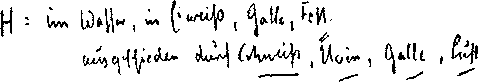 H = im Wasser, in Eiweiß, Galle, Fett
ausgeschieden durch Schweiß, Urin, Galle, Luft